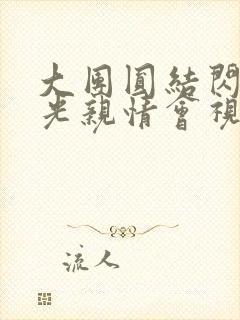 大團圓結閃
光親情會視
流人